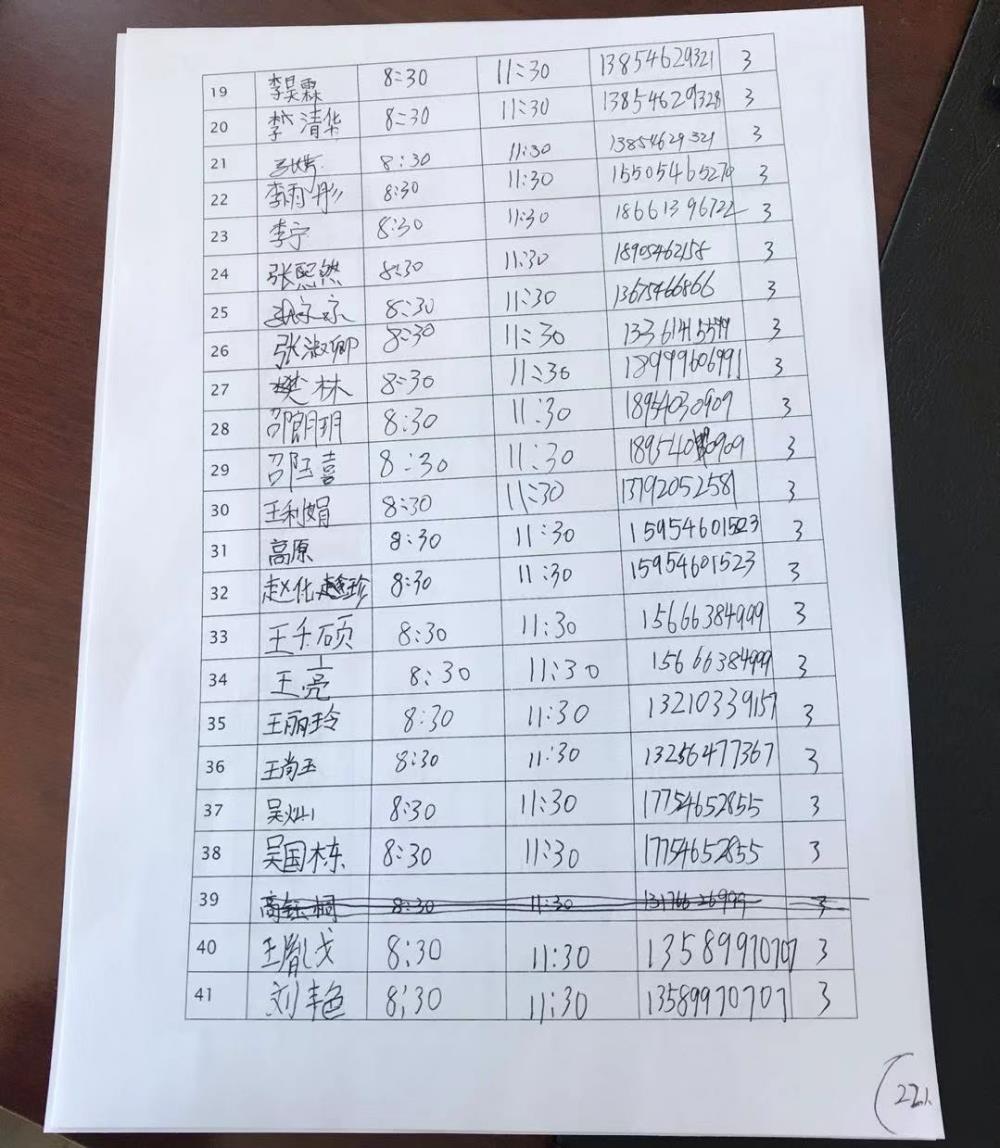 19 李昊霖 8:30 11:30 13854629321 3
20 李清华 8:30 11:30 13854629328 3
21 8:30 11:30 13854629321 3
22 李雨彤 8:30 11:30 15505465270 3
23 李宁 8:30 11:30 18661396722 3
24 张熙然 8:30 11:30 18905462158 3
25 8:30 11:30 13675466866 3
26 张淑卿 8:30 11:30 3
27 樊林 8:30 11:30 18999606991 3
28 邵朗玥 8:30 11:30 18954030909 3
29 8:30 11:30 3
30 王利娟 8:30 11:30 13792052581 3
31 高原 8:30 11:30 15954601523 3
32 赵化珍 8:30 11:30 15954601523 3
33 王千硕 8:30 11:30 15666384999 3
34 王亮 8:30 11:30 15666384999 3
35 王丽玲 8:30 11:30 13210339157 3
36 王尚玉 8:30 11:30 13256477367 3
37 吴灿 8:30 11:30 17754652855 3
38 吴国栋 8:30 11:30 17754652855 3
39 高钰桐 8:30 11:30 3
40 王胤戈 8:30 11:30 13589970707 3
41 刘丰色 8:30 11:30 13589970707 3
22人